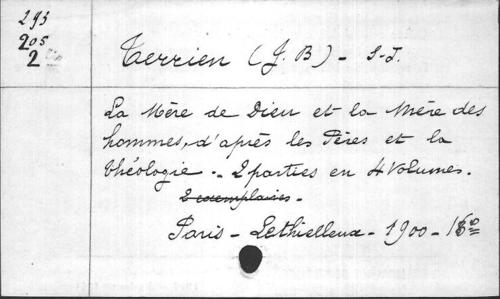 293
205
2
Terrien (J. B) - S-J.
La Mère de Dieu et la Mère des
hommes, d'après les Pères et la
théologie. - 2 parties en 4 Volumes.
2 exemplaires.
Paris - Lethielleux - 1900 -